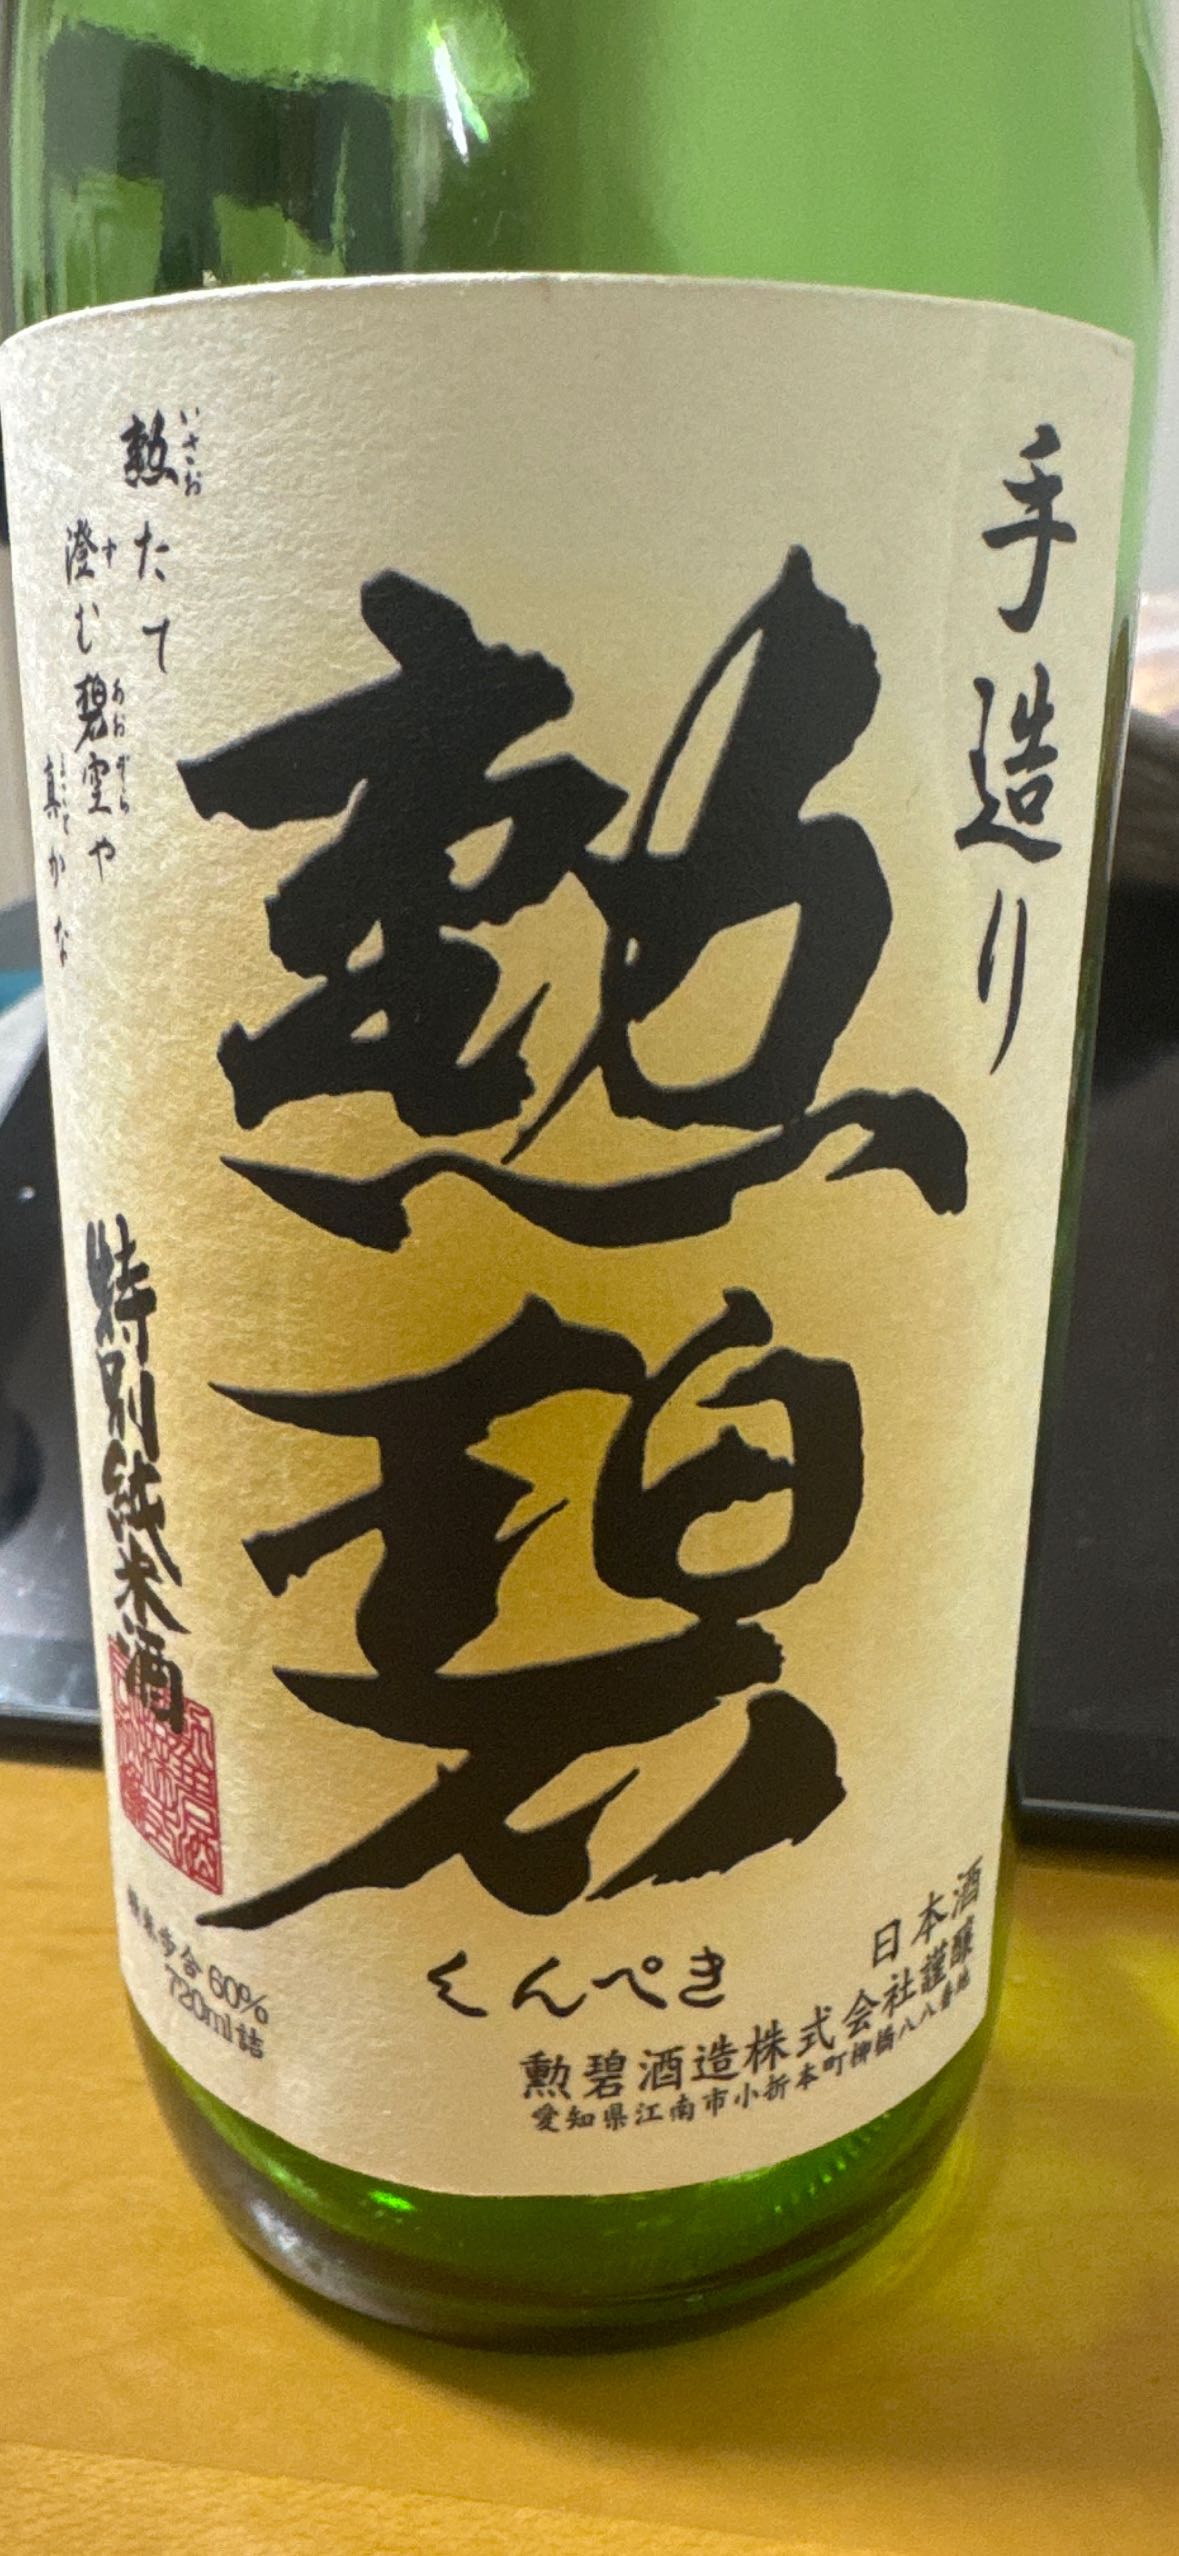 手造り
勲碧
くんぺき
勲たて
いさお
澄む碧空や
す
あおぞら
真かな
まこと
特別純米酒
精米歩合60%
720ml詰
日本酒
勲碧酒造株式会社謹醸
愛知県江南市小折本町柳橋八八番地